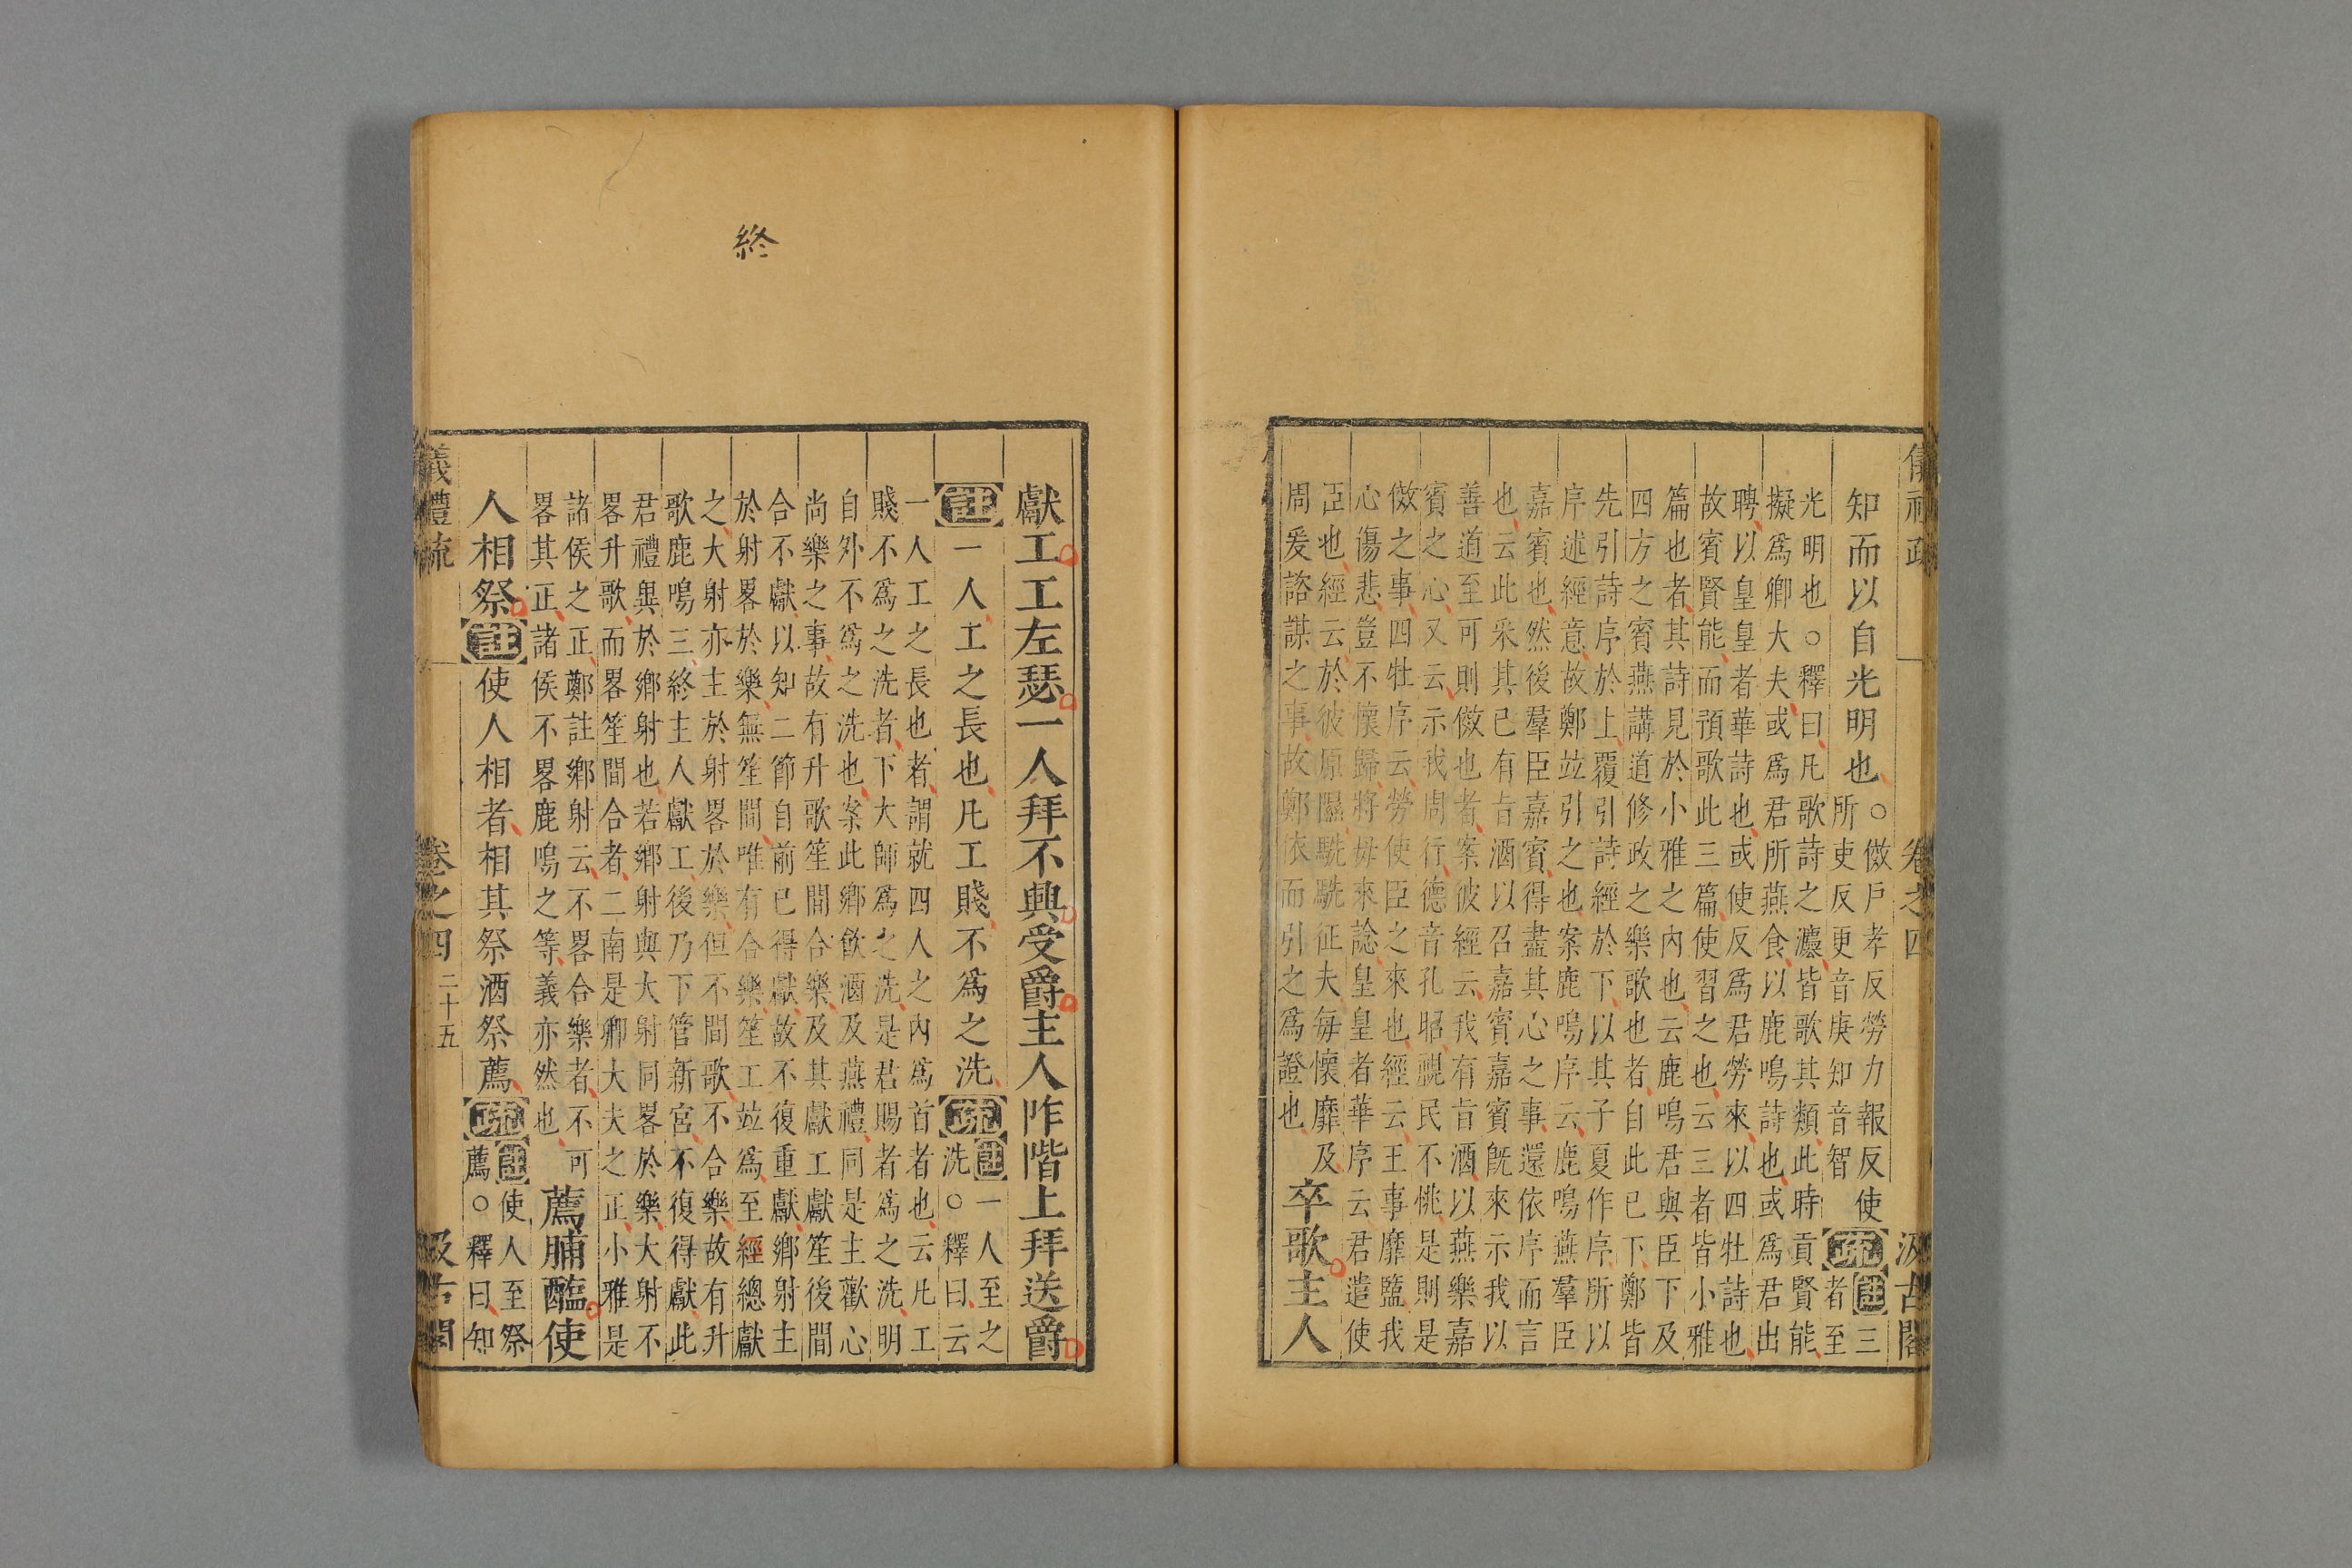 儀禮疏 卷之四 汲古閣
知而以自光明也○傚戶孝反勞力報反使
所吏反更音庚知音智
疏註三
者至
光明也○釋曰凡歌詩之灋皆歌其類此時貢賢能
擬爲卿大夫或爲君所燕食以鹿鳴詩也或爲君出
聘以皇皇者華詩也或使反爲君勞來以四牡詩也
故賓賢能而預歌此三篇使習之也云三者皆小雅
篇也者其詩見於小雅之內也云鹿鳴君與臣下及
四方之賓燕講道修政之樂歌也者自此已下鄭皆
先引詩序於上覆引詩經於下以其子夏作序所以
序述經意故鄭竝引之也案鹿鳴序云鹿鳴燕羣臣
嘉賓也然後羣臣嘉賓得盡其心之事還依序而言
也云此采其已有旨酒以召嘉賓嘉賓旣來示我以
善道至可則傚也者案彼經云我有旨酒以燕樂嘉
賓之心又云示我周行德音孔昭視民不恌是則是
傚之事四牡序云勞使臣之來也經云王事靡盬我
心傷悲豈不懷歸將毋來諗皇皇者華序云君遣使
臣也經云於彼原隰駪駪征夫每懷靡及
周爰諮謀之事故鄭依而引之爲證也
卒歌主人
終
獻工工左瑟一人拜不興受爵主人阼階上拜送爵
註一人工之長也凡工賤不爲之洗疏註一人至之
洗○釋曰云
一人工之長也者謂就四人之內爲首者也云凡工
賤不爲之洗者下大師爲之洗是君賜者爲之洗明
自外不爲之洗也案此鄉飮酒及燕禮同是主歡心
尚樂之事故有升歌笙間合樂及其獻工獻笙後間
合不獻以知二節自前已得獻故不復重獻鄉射主
於射畧於樂無笙間唯有合樂笙工竝爲至經總獻
之大射亦主於射畧於樂但不間歌不合樂故有升
歌鹿鳴三終主人獻工後乃下管新宮不復得獻此
君禮與於鄉射也若鄉射與大射同畧於樂大射不
畧升歌而畧笙間合者二南是卿大夫之正小雅是
諸侯之正鄭註鄉射云不畧合樂者不可
畧其正諸侯不畧鹿鳴之等義亦然也
薦脯醢使
人相祭註使人相者相其祭酒祭薦疏註使人至祭
薦○釋曰知
儀禮疏 卷之四 二十五 汲古閣